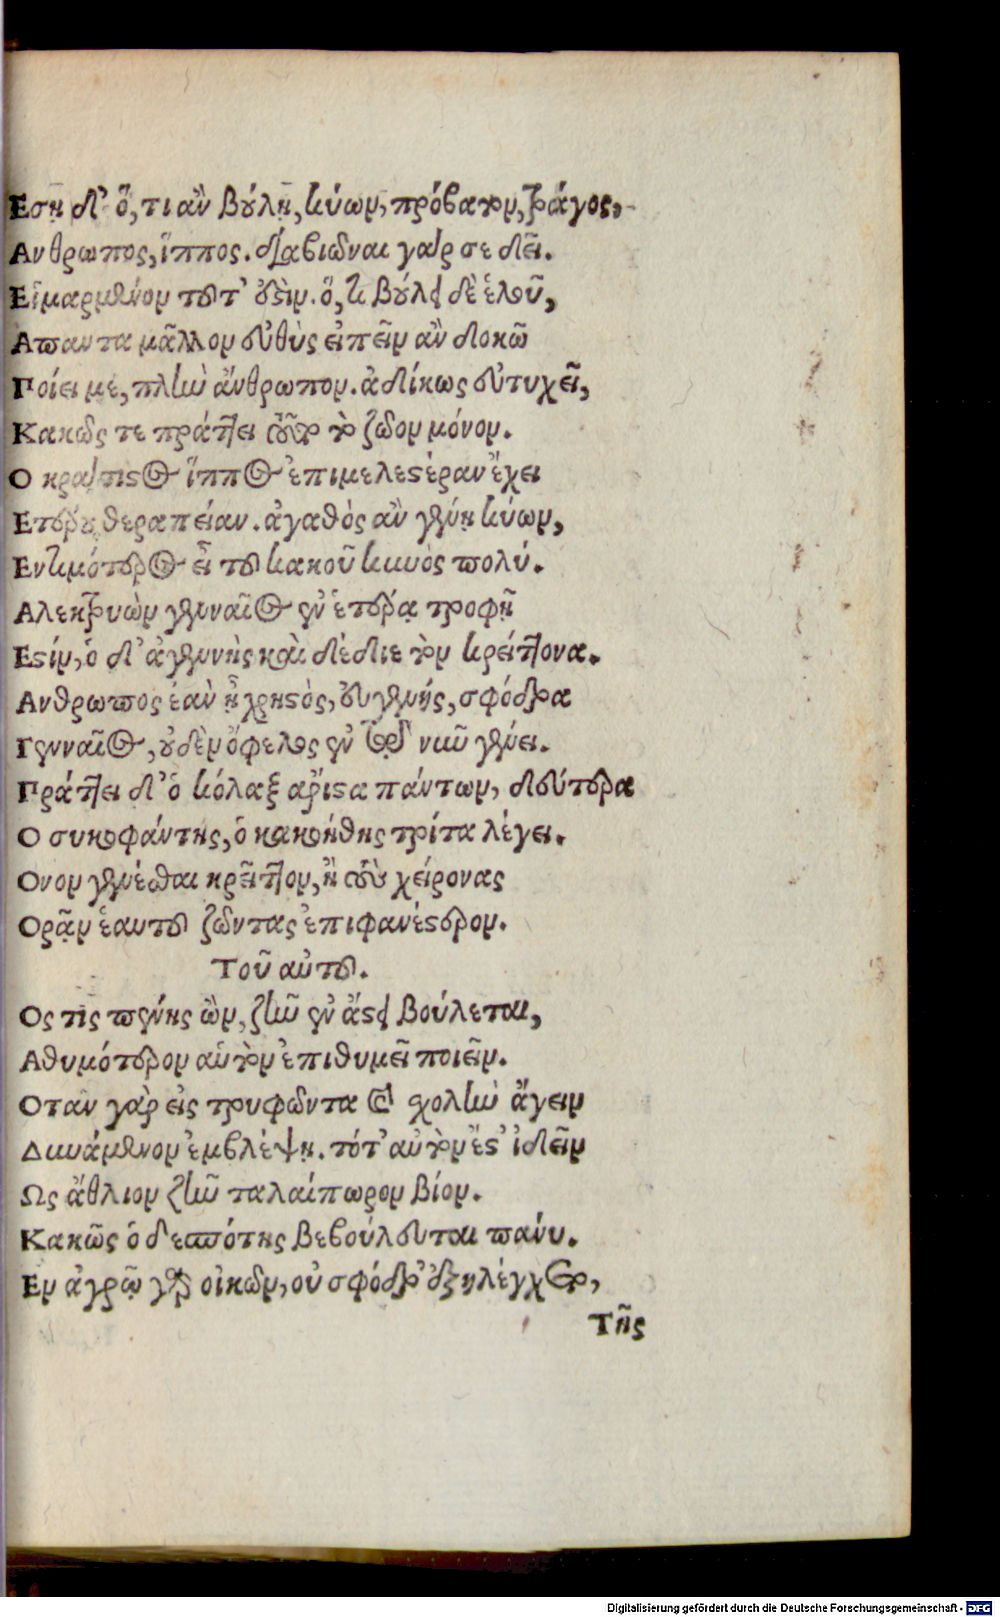 Εσῃ δ' ὅ,τι ἂν βούλῃ, κύων, πρόβατον, τράγος,
Ανθρωπος, ἵππος. διαβιῶναι γάρ σε δεῖ.
Εἱμαρμένον τοῦτ' ὀυςὶν. ὅ,τι βούλει δὲ ἑλοῦ,
Απαντα μᾶλλον εὐθὺς εἰπεῖν ἂν δοκῶ
Ποίει με, πλὴν ἄνθρωπον. ἀδίκως εὐτυχεῖ,
Κακῶς τε πράττει τοῦτο τὸ ζῶον μόνον.
Ο κράτιστος ἵππος ἐπιμελεστέραν ἔχει
Ετέρου θεραπείαν. ἀγαθὸς ἂν γένῃ κύων,
Εντιμότερος εἶ τοῦ κακοῦ κυνὸς πολύ.
Αλεκτρυὼν γενναῖος ἐν ἑτέρᾳ τροφῇ
Εστίν, ὁ δ' ἀγεννὴς καὶ δέδιε τὸν κρείττονα.
Ανθρωπος ἐὰν ᾖ χρηστὸς, ἐυγενής, σφόδρα
Γενναῖος, οὐδὲν ὄφελος ἐν τῷ νῦν γένει.
Πράττει δ' ὁ κόλαξ ἄριστα πάντων, δεύτερα
Ο συκοφάντης, ὁ κακοήθης τρίτα λέγει.
Ονον γενέσθαι κρεῖττον, ἢ τοὺς χείρονας
Ορᾷν ἑαυτοῦ ζῶντας ἐπιφανέστερον.
Τοῦ αὐτοῦ.
Ος τις πένης ὢν, ζῆν ἐν ἄστει βούλεται,
Αθυμότερον αὑτὸν ἐπιθυμεῖ ποιεῖν.
Οταν γὰρ εἰς τρυφῶντα καὶ σχολὴν ἄγειν
Δυνάμενον ἐμβλέψῃ. τότ' αὐτὸν ἔστ' ἰδεῖν
Ως ἄθλιον ζῆν ταλαίπωρον βίον.
Κακῶς ὁ δεσπότης βεβούλευται πάνυ.
Εν ἀγρῷ γὰρ οἰκῶν, οὐ σφόδρ' ἐξηλέγχετο,
Τῆς
Digitalisierung gefördert durch die Deutsche Forschungsgemeinschaft - DFG